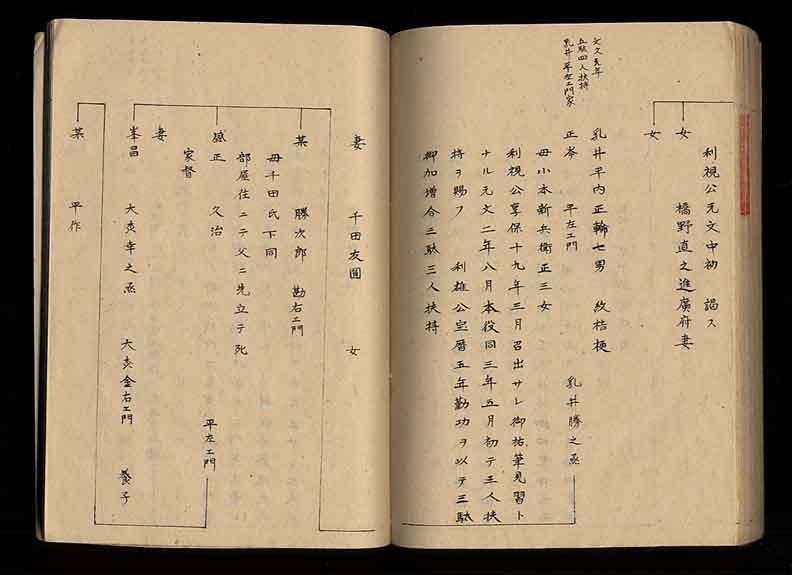 利視公元文中初 謁ス
女 橋野直之進廣府妻
女
文久元年
五駄四人扶持
乳井平左エ門家
乳井平内正輔七男 紋桔梗
正岑 平左エ門 乳井勝之丞
母小本新兵衛正三女
利視公享保十九年三月召出サレ御祐筆見習ト
ナル元文二年八月本役同三年五月初テ三人扶
持ヲ賜フ 利雄公宝暦五年勤功ヲ以テ三駄
御加増合三駄三人扶持
妻 千田友圓 女
某 勝次郎 勘右エ門
母千田氏下同
部屋住ニテ父ニ先立テ死
盛正 久治 平左エ門
家督
妻
峯昌 大炎幸之丞 大炎金右エ門 養子
某 平作